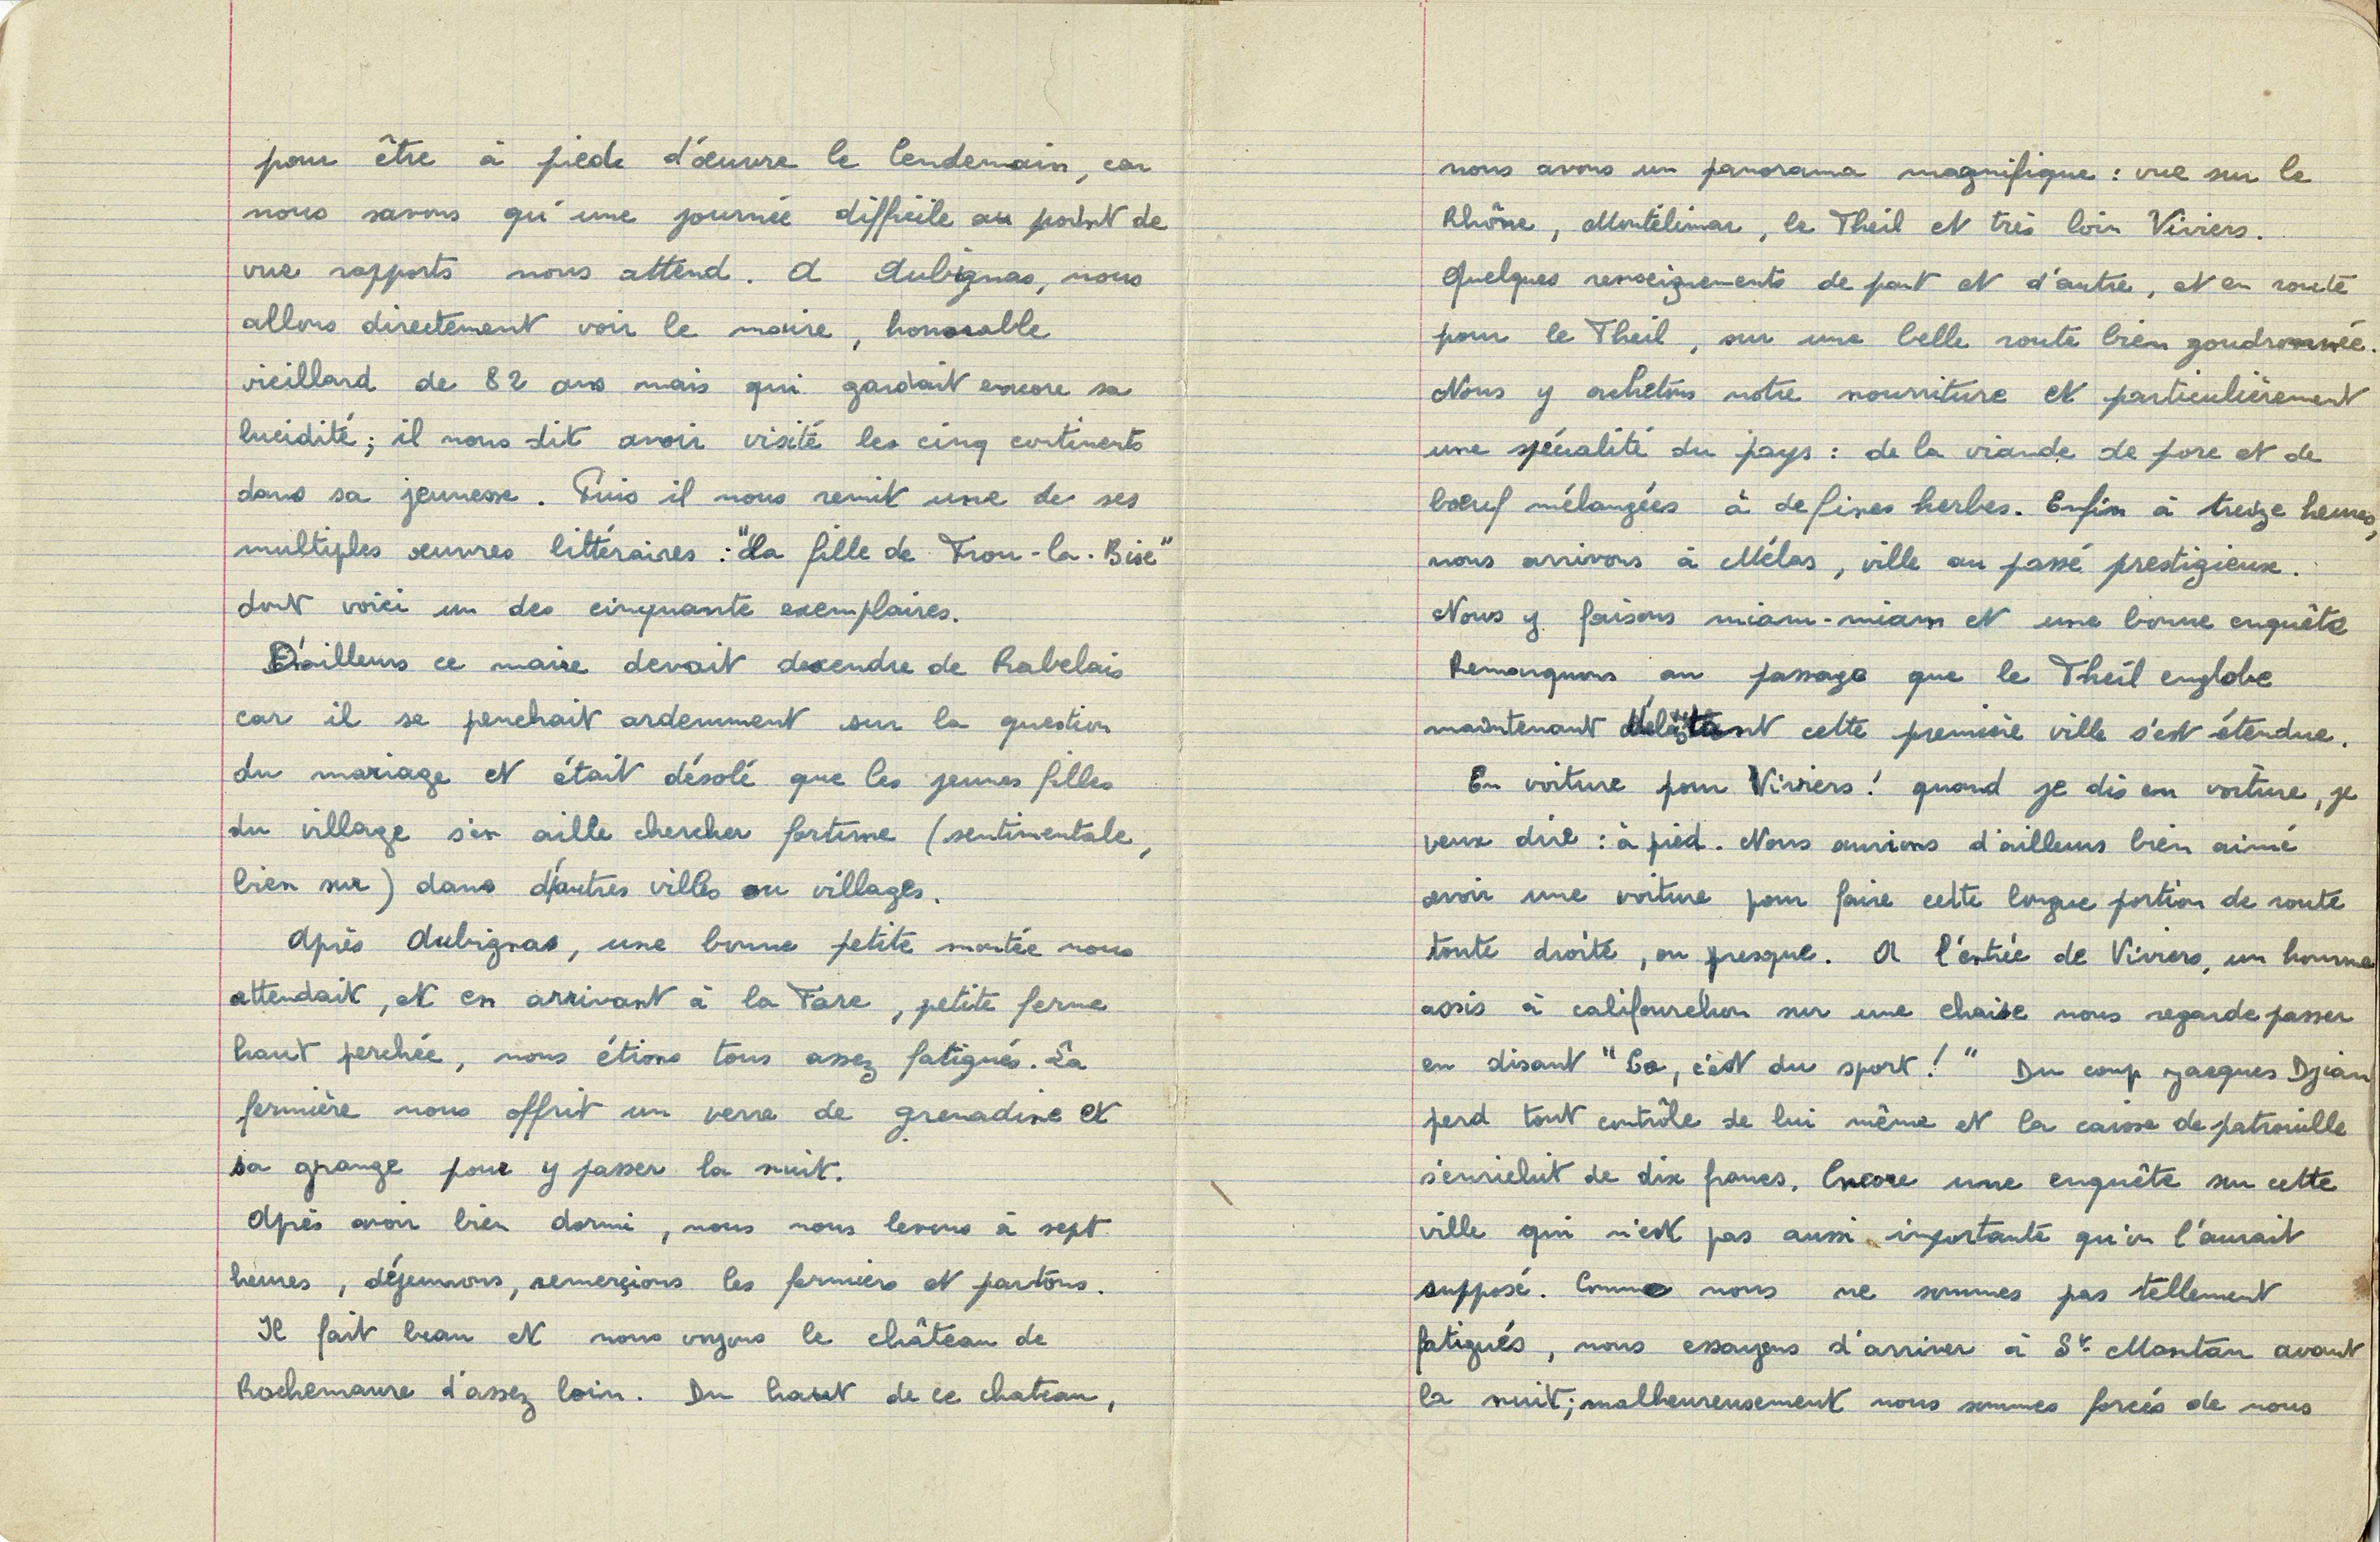 pour être à pieds d'œuvre le lendemain, car
nous savons qu'une journée difficile au point de
vue rapports nous attend. A Aubignas, nous
allons directement voir le maire, honorable
vieillard de 82 ans mais qui gardait encore sa
lucidité; il nous dit avoir visité les cinq continents
dans sa jeunesse. Puis il nous remit une de ses
multiples œuvres littéraires : "La fille de Trou-la-Bise"
dont voici un des cinquante exemplaires.
D'ailleurs ce maire devait descendre de Rabelais
car il se penchait ardemment sur la question
du mariage et était désolé que les jeunes filles
du village s'en aille chercher fortune (sentimentale,
bien sur) dans d'autres villes ou villages.
Après Aubignas, une bonne petite montée nous
attendait, et en arrivant à la Fare, petite ferme
haut perchée, nous étions tous assez fatigués. La
fermière nous offrit un verre de grenadine et
sa grange pour y passer la nuit.
Après avoir bien dormi, nous nous levons à sept
heures, déjeunons, remerçions les fermiers et partons.
Il fait beau et nous voyons le château de
Rochemaure d'assez loin. Du haut de ce chateau,
nous avons un panorama magnifique : vue sur le
Rhône, Montélimar, le Theil et très loin Viviers.
Quelques renseignements de part et d'autre, et en route
pour le Theil, sur une belle route bien goudronnée.
Nous y achetons notre nourriture et particulièrement
une spécialité du pays : de la viande de porc et de
bœuf mélangées à de fines herbes. Enfin à treize heures,
nous arrivons à Mélas, ville au passé prestigieux.
Nous y faisons miam-miam et une bonne enquête
Remarquons au passage que le Theil englobe
maintenant cette première ville s'est étendue.
En voiture pour Viviers! quand je dis en voiture, je
veux dire : à pied. Nous aurions d'ailleurs bien aimé
avoir une voiture pour faire cette longue portion de route
toute droite, ou presque. A l'entrée de Viviers, un homme
assis à califourchon sur une chaise nous regarde passer
en disant "Ca, c'est du sport!" Du coup Jacques Djian
perd tout contrôle de lui même et la caisse de patrouille
s'enrichit de dix francs. Encore une enquête sur cette
ville qui n'est pas aussi importante qu'on l'aurait
supposé. Comme nous ne sommes pas tellement
fatigués, nous essayons d'arriver à St Montan avant
la nuit; malheureusement nous sommes forcés de nous